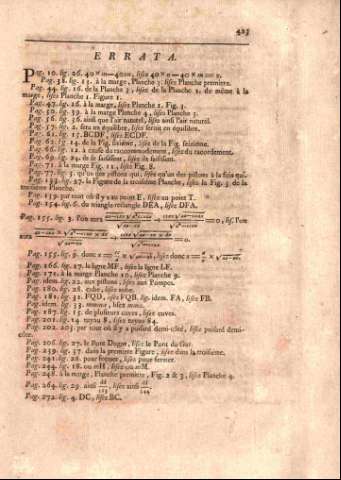 423
ERRATA.
Pag. 10. lig. 26. 40 × lisez 40 ×
Pag. 38. lig. 15. à la marge, Planche 7. lisez Planche premiere.
Pag. 44. lig. 16. de la Planche 3, lisez de la Planche 2. de même à la
marge, lisez Planche 2. Figure 1.
Pag. 47. lig. 26. à la marge, lisez Planche 2. Fig. 3.
Pag. 50. lig. 39. à la marge Planche 4, lisez Planche 3.
Pag. 56. lig. 36. ainsi que l'air naturel, lisez ainsi l'air naturel.
Pag. 57. lig. 2. sera en équilibre, lisez seront en équilibre.
Pag. 61. lig. 15. BCDF, lisez ECDF.
Pag. 63. lig. 14. de la Fig. sixiéme, lisez de la Fig. seiziéme.
Pag. 66. lig. 12. à cause du raccommodement, lisez du raccordement.
Pag. 69. lig. 24. de se saisissent, lisez se saisissent.
Pag. 71. à la marge Fig. 11, lisez Fig. 8.
Pag. 77. lig. 33. qu'un des pistons qui, lisez qu'un des pistons à la fois qui.
Pag. 133. lig. 27. la Figure de la troisiéme Planche, lisez la Fig. 5 de la
troisiéme Planche.
Pag. 139. par tout où il y a au point E, lisez au point T.
Pag. 154. lig. 6. du triangle rectangle DEA, lisez DFA.
Pag. 155. lig. 3. l'on aura = 0, lis. l'on
aura = 0.
Pag. 155. lig. 9. donc lisez donc
Pag. 166. lig. 27. la ligne MF, lisez la ligne LF.
Pag. 171. à la marge Planche 10, lisez Planche 9.
Pag. idem. lig. 22. aux pistons, lisez aux Pompes.
Pag. 180. lig. 28. cube, lisez tube.
Pag. 181. lig. 31. FQD, lisez FQB. lig. idem. FA, lisez FB.
Pag. idem. lig. 33. lisez
Pag. 187. lig. 15. de plusieurs cuves, lisez cuves.
Pag. 201. lig. 14. tuyau 8, lisez tuyau 84.
Pag. 202. 203. par tout où il y a puisard demi-côté, lisez puisard demi-
côte.
Pag. 206. lig. 27. le Pont Dogm, lisez le Pont du Gar.
Pag. 239. lig. 37. dans la premiere Figure, lisez dans la troisiéme.
Pag. 241. lig. 26. pour former, lisez pour fermer.
Pag. 244. lig. 18. ou mH, lisez ou mM.
Pag. 248. à la marge, Planche premiere, Fig. 2 & 3, lisez Planche 4.
Pag. 264. lig. 29. ainsi lisez ainsi
Pag. 272. lig. 4. DC, lisez BC.